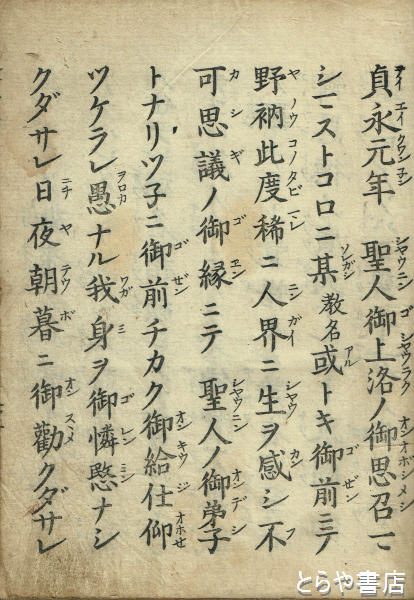 貞永元年 聖人御上洛ノ御思召マ
シマストコロニ某教名或トキ御前ニテ
野衲此度稀ニ人界ニ生ヲ感シ不
可思議ノ御縁ニテ 聖人ノ御弟子
トナリツ子ニ御前チカク御給仕仰
ツケラレ愚ナル我身ヲ御憐愍ナシ
クダサレ日夜朝暮ニ御勸クダサレ
とらや書店